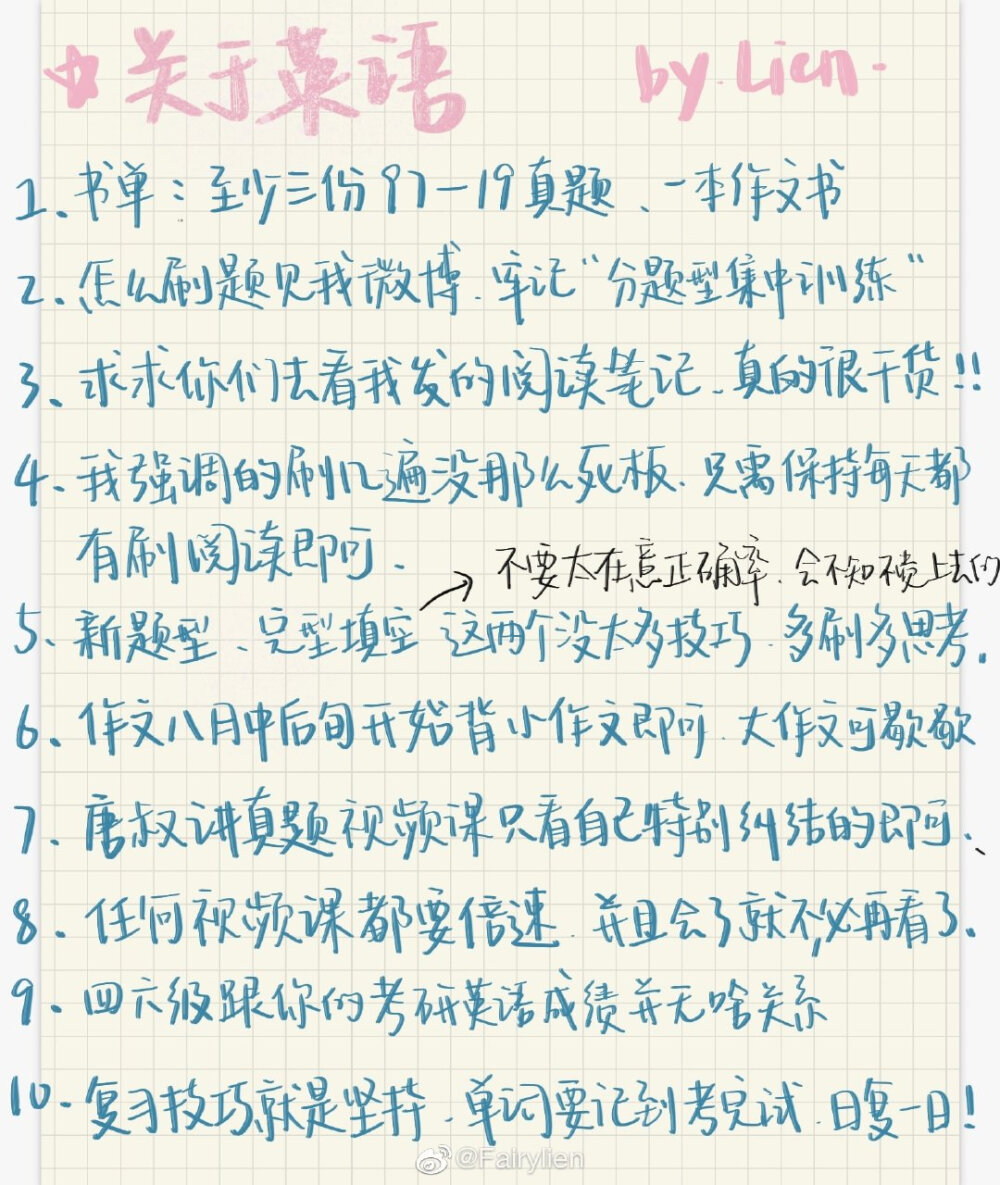 ☆关于英语 by Lien.
1、书单：至少三份97—19真题、一本作文书
2、怎么刷题见我微博、牢记“分题型集中训练”
3、求求你们去看我发的阅读笔记、真的很干货！！
4、我强调的刷几遍没那么死板、只需保持每天都
有刷阅读即可．
→不要太在意正确率、会不知不觉上去的
5、新题型、完型填空 这两个没太多技巧、多刷多思考．
6、作文八月中后旬开始背小作文即可、大作文可歇歇
7、唐叔讲真题视频课只看自己特别纠结的即可、
8、任何视频课都要倍速、并且会了就不必再看了、
9、四六级跟你的考研英语成绩并无啥关系
10、复习技巧就是坚持、单词要记到考完试、日复一日！
@Fairylien